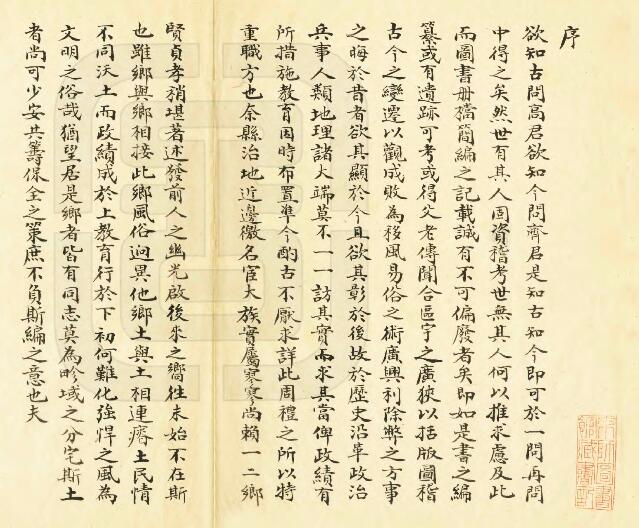 序
欲知古問高君欲知今問齊君是知古知今即可於一問再問
中得之矣然世有其人固資稽考世無其人何以推求慮及此
而圖書册檔簡編之記載誠有不可偏廢者矣即如是書之編
纂或有遺跡可考或得父老傳聞合區宇之廣狹以括版圖稽
古今之變遷以觀成敗為移風易俗之術廣興利除弊之方事
之晦於昔者欲其顯於今且欲其彰於後故於歷史沿革政治
兵事人類地理諸大端莫不一一訪其實而求其當俾政績有
所措施教育因時布置準今酌古不厭求詳此周禮之所以特
重職方也奈縣治地近邊徼名宦大族實屬寥寥尚賴一二鄉
賢貞孝稍堪著述發前人之幽光啟後來之嚮往未始不在斯
也雖鄉與鄉相接此鄉風俗迥異他鄉土與土相連瘠土民情
不同沃土而政績成於上教育行於下初何難化強悍之風為
文明之俗哉猶望居是鄉者皆有同志莫為畛域之分宅斯土
者尚可少安共籌保全之策庶不負斯編之意也夫